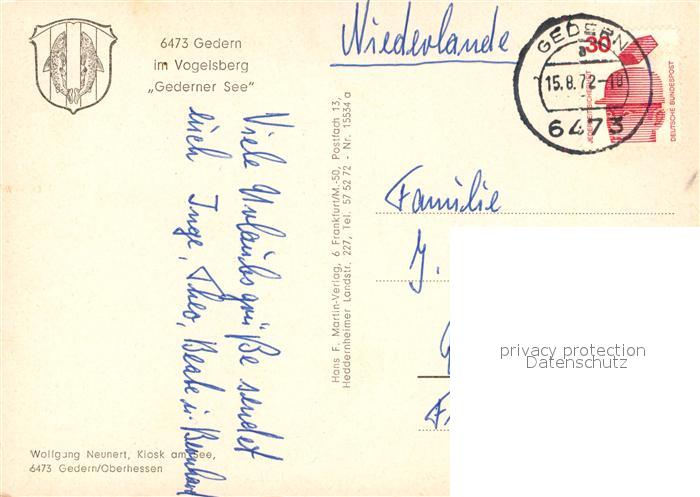 6473 Gedern
im Vogelsberg
„Gederner See"
Niederlande
GEDERN
a
15.8.72-18
6473
30
DEUTSCHE BUNDESPOST
Viele Urlaubsgrüße sendet
euch Inge, Theo, Beate u. Bernhard
Hans F. Martin-Verlag, 6 Frankfurt/M.-50, Postfach 13,
Heddernheimer Landstr. 227, Tel. 57 52 72 - Nr. 15534 a
Familie
J.
privacy protection
Datenschutz
Wolfgang Neunert, Kiosk am See,
6473 Gedern/Oberhessen